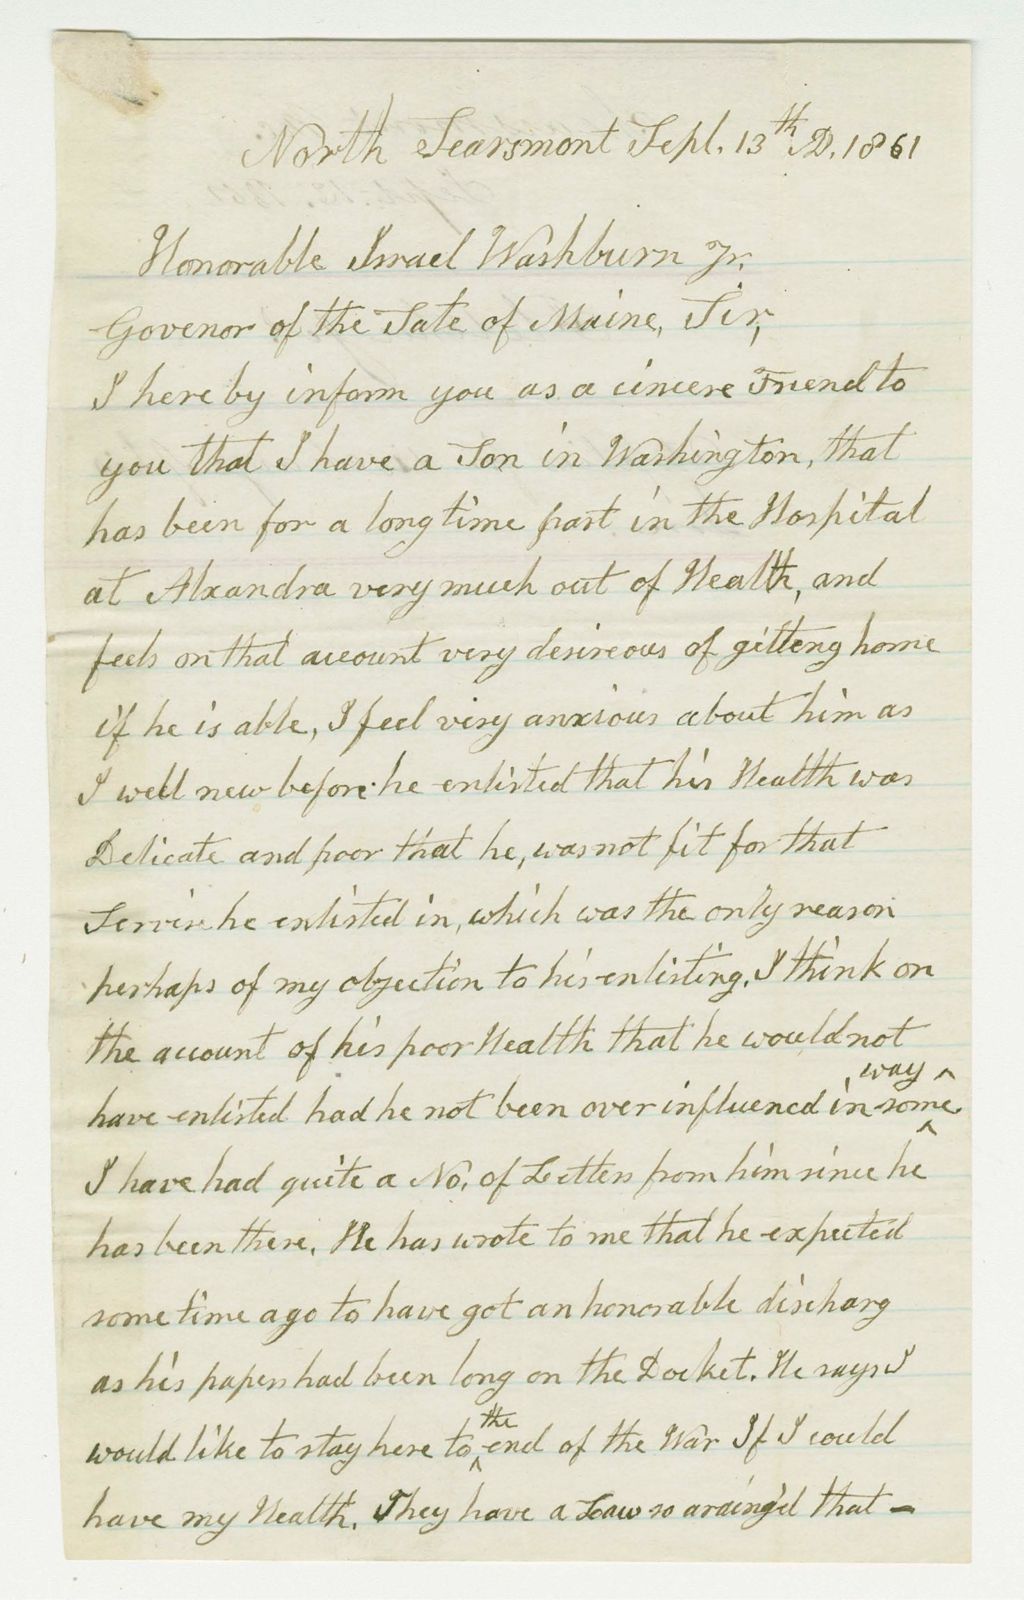 North Searsmont Sept. 13th AD. 1861
Honorable Israel Washburn Jr.
Govenor of the Sate of Maine, Sir,
I hereby inform you as a cincere Friend to
you that I have a Son in Washington, that
has been for a long time past in the Hospital
at Alxandra very much out of Health, and
feels on that account very desireous of gitteng home
if he is able, I feel very anxious about him as
I well new before he enlisted that his Health was
Delicate and poor that he, was not fit for that
Servis he enlisted in, which was the only reason
perhaps of my objection to his enlisting. I think on
the account of his poor Health that he would not
have enlisted had he not been over influenced in some way
I have had quite a No. of Letters from him since he
has been there. He has wrote to me that he expected
some time ago to have got an honorable discharg
as his papers had been long on the Docket. He says I
would like to stay here to the end of the War If I could
have my Health. They have a Law so araing'd that –